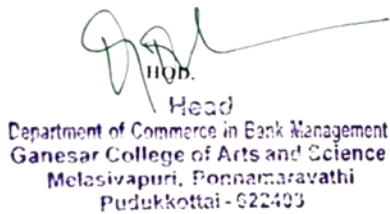 HOD.
Head
Department of Commerce in Bank Management
Ganesar College of Arts and Science
Melasivapuri, Ponnamaravathi
Pudukkottai - 622403